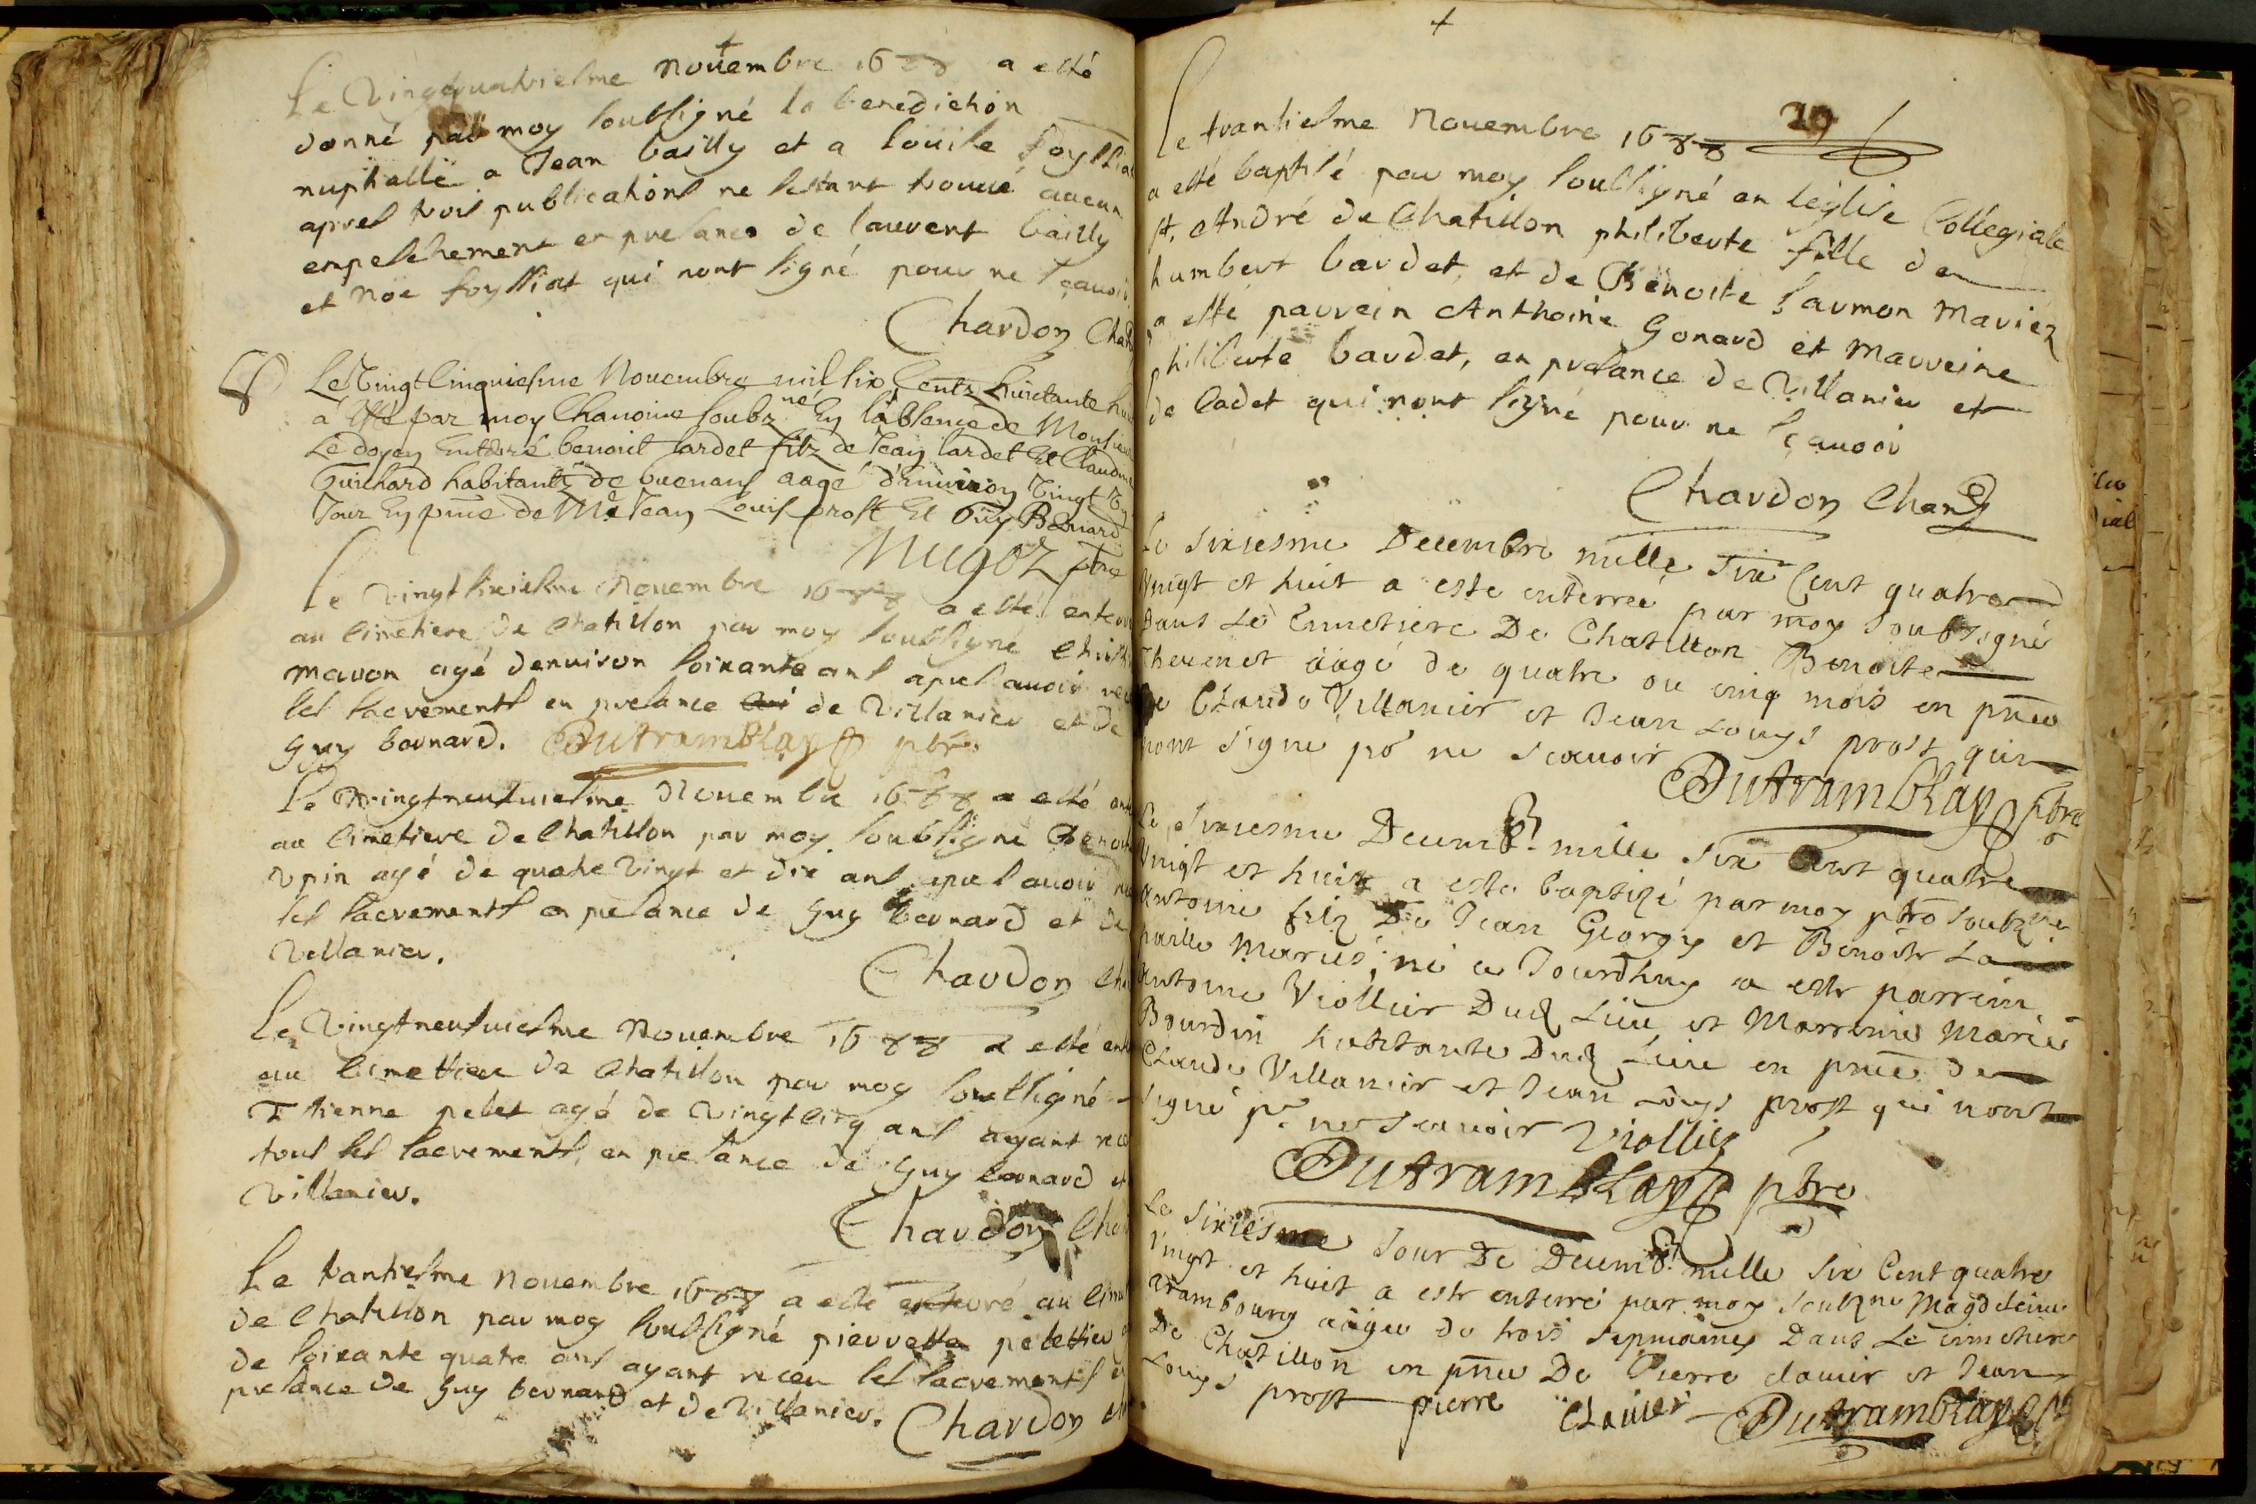 Le vingtquatriesme novembre 1688 a esté
donné par moy soubsigné la benediction
nuptialle a Jean bailly et a louise foylliat
apres trois publications ne sestant trouué aucun
empeschement en presance de laurent bailly
et noe foylliat qui nont signé pour ne sçauoir
Chardon Chan
Le Vingt Cinquiesme Novembre mil six Centz huictante huict
a Esté par moy Chanoine soubzné En labsence de Monsieur
Le doyen Enterré benoit lardet filz de Jean lardet Et Claudine
Guichard habitantz de buenans aagé d'enuiron Vingt Un
Jour En pnce de Me Jean Louis prost Et Guy Bernard
Nugoz ptre
Le vingtsixiesme novembre 1688 a esté enterré
au cimetiere de Chatillon par moy soubsigné
maron agé denuiron soixante ans apres auoir receu
les sacrements en presance de Villanier et de
Guy bernard. Dutramblay ptre
Le vingtneufuiesme Nouembre 1688 a esté
au cimetiere de Chatillon par moy soubsigné Benoit
Vpin agé de quatre vingt et dix ans apres auoir
les sacrements en presance de Guy bernard et de
Villanier.
Chardon Chan
Le vingtneufuiesme Nouembre 1688 a esté
au cimetiere de Chatillon par moy soubsigné
Etienne pelet agé de vingtcinq ans ayant receu
tous les sacrements, en presance de Guy bernard et
Villanier.
Chardon Chan
Le trantiesme Nouembre 1688 a esté enterré au
de Chatillon par moy soubsigné pierrette peletier
de soixante quatre ans ayant receu les sacrements en
presance de Guy bernard et de Villanier.
Chardon
29
Le trantiesme Nouembre 1688
a esté baptisé par moy soubsigné en léglise Collegiale
st. André de Chatillon philiberte fille de
humbert bardet, et de Benoite saumon Mariez
a esté parrein Anthoine Gonard et Marreine
philiberte bardet, en presance de Villanier et
de Cadet qui nont signé pour ne sçauoir
Chardon Chan
Le sixiesme Decembre mille Six Cent quatre
Vingt et huit a este enterree par moy soubsigné
Dans Le Cimetiere De Chatillon Benoite
Theuenet aagé de quatre ou cinq mois en pnce
De Claude Villanier et Jean Louys prost qui
nont signe po ne scauoir
Dutramblay ptre
Le sixiesme Decemb. mille six Cent quatre
Vingt et huit a este baptizé par moy ptre soubzne
Antoine filz De Jean George et Benoite La
paille Mariés, né ce Jourdhuy a este parrein
Antoine Viollier Dud Lieu et Marreine Marie
Bourdin habitante Dud Lieu en pnce de
Claude Villanier et Jean Louys prost qui nont
signé pr ne Scauoir Viollier
Dutramblay ptre
Le sixiesme Jour De Decemb. mille Six Cent quatre
vingt et huit a este enterré par moy soubzne Magdeleine
arambourg aagee de trois sepmaines Dans Le cimetiere
De Chatillon en pnce De Pierre clauier et Jean
Louys prost pierre Clauier Dutramblay